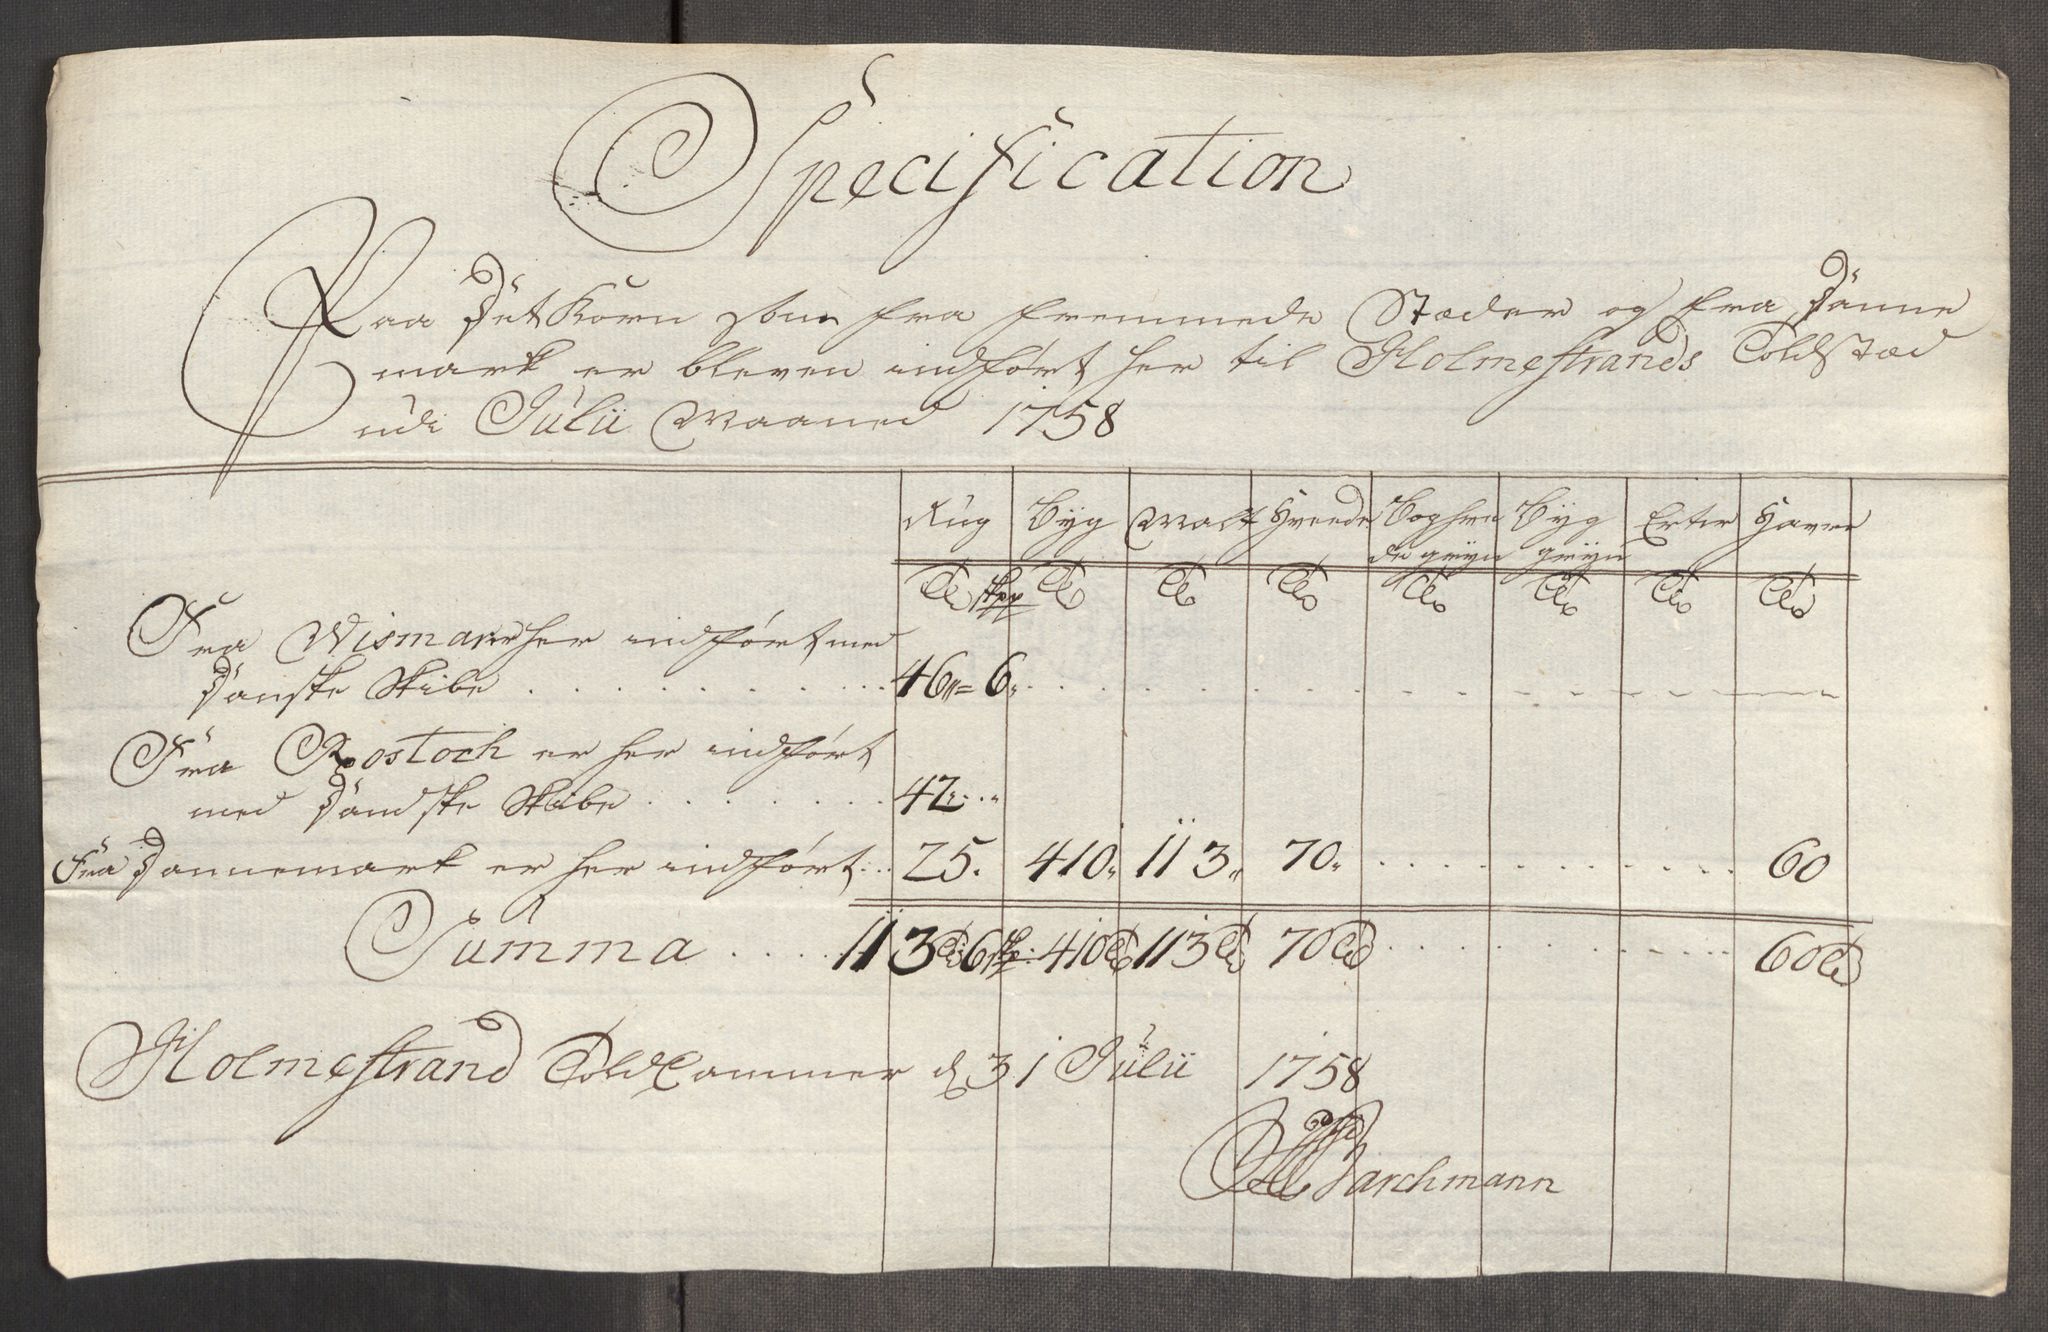 Specification
Paa det Korn som fra fremmede Stæder og fra Danne
mark er bleven indført her til Holmestrands Toldstæd
udi Julii Maaned 1758
Rug Byg Malt Hvede Boghve Byg Erter Havre
de gryn gryn
Tdr skpr Tdr Tdr Tdr Tdr Tdr Tdr Tdr
Fra Wismar er her indført med
Danske Skibe . . . . . . . . . . 46 = 6
Fra Rostoch er her indført
med Dandske Skibe . . . . . . . 42
Fra Dannemark er her indført . . 25. 410. 113. 70. . . . . . . . . 60
Summa . . . . 113 Tdr 6 skpr 410 Tdr 113 Tdr 70 Tdr . . . . . . . . 60 Tdr
Holmestrand Told Cammer d 31 Julii 1758
Barchmann